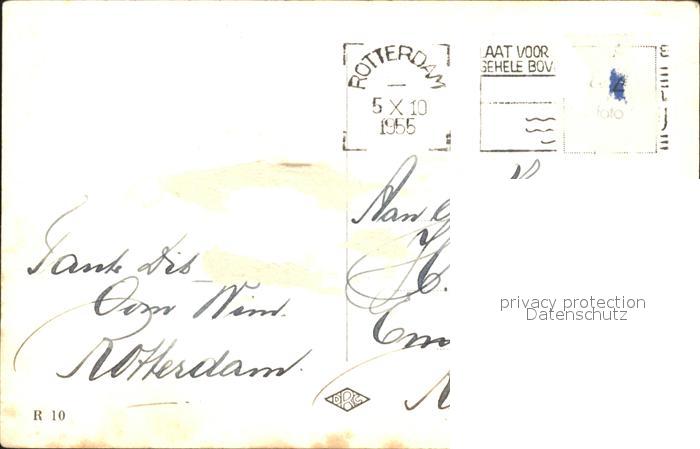 ROTTERDAM
5 X 10
1955
LAAT VOOR
GEHELE BOV
foto
Aan
H.
Tante Dit
Oom Wim.
Rotterdam.
R 10
privacy protection
Datenschutz